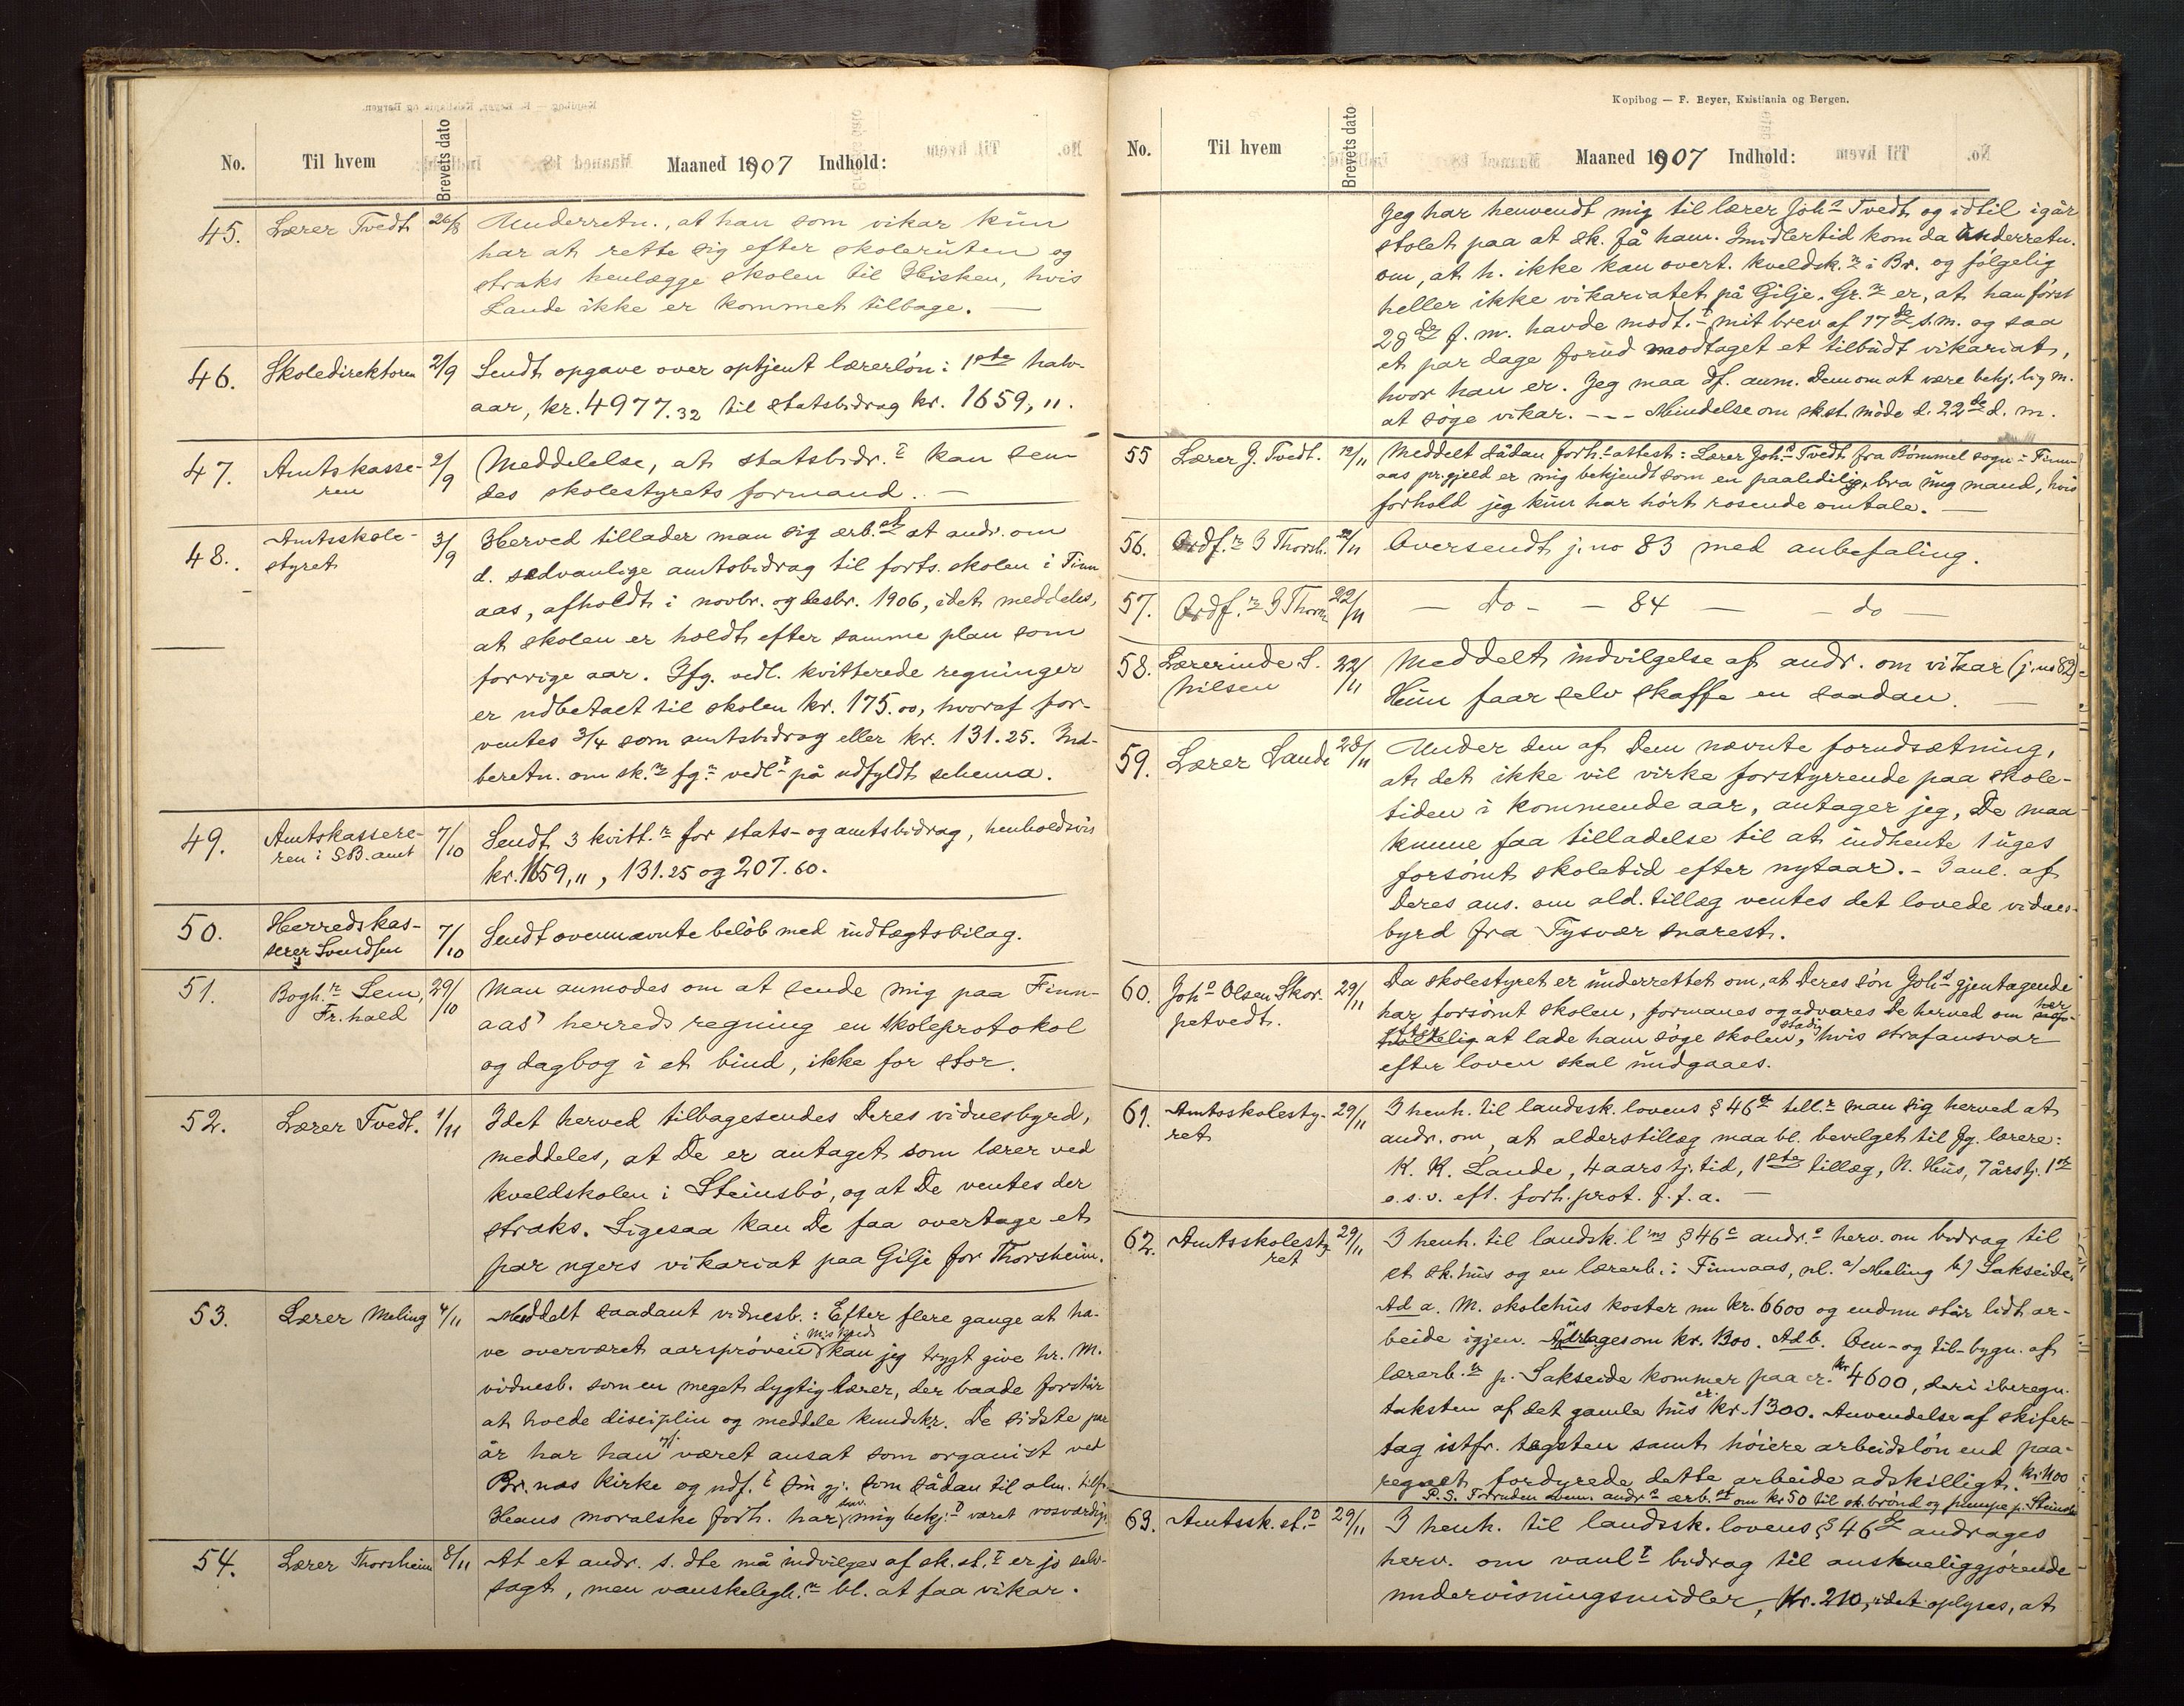 No. Til hvem Brevets dato Maaned 1907 Indhold:
45. Lærer Tvedt 26/8 Underretn., at han som vikar kun
har at rette sig efter skoleruten og
straks henlægge skolen til Hisken, hvis
Lande ikke er kommet tilbage. —
46. Skoledirektoren 2/9 Sendt opgave over optjent lærerløn i 1ste halv-
aar, kr. 4977.32 til statsbidrag kr. 1659,,.
47. Amtskasse- 2/9 Meddelelse, at statsbidr.t kan sen-
ren des skolestyrets formand. —
48. Amtsskole- 3/9 Herved tillader man sig ærb.st at andr. om
styret d. sædvanlige amtsbidrag til forts. skolen i Finn
aas, afholdt i novbr. og desbr. 1906, idet meddeles,
at skolen er holdt efter samme plan som
forrige aar. Ifg. vedl. kvitterede regninger
er udbetalt til skolen kr. 175.00, hvoraf for-
ventes 3/4 som amtsbidrag eller kr. 131.25. Ind-
beretn. om sk.n fg.r vedl.t på udfyldt schema.
49. Amtskassere- 7/10 Sendt 3 kvitt.r for stats- og amtsbidrag, henholdsvis
ren i S.B. amt kr. 1659,,, 131.25 og 207.60.
50. Herredskas- 7/10 Sendt ovennævnte beløb med indtægtsbilag.
serer Svendsen
51. Bogh.r Sem, 29/10 Man anmodes om at sende mig paa Finn-
Fr.hald aas' herreds regning en skoleprotokol
og dagbog i et bind, ikke for stor.
52. Lærer Tvedt. 1/11 Idet herved tilbagesendes Deres vidnesbyrd,
meddeles, at De er antaget som lærer ved
kveldskolen i Steinsbø, og at De ventes der
straks. Ligesaa kan De faa overtage et
par ugers vikariat paa Gilje for Thorsheim.
53. Lærer Meling 4/11 Meddelt saadant vidnesb.: Efter flere gange at ha-
ve overværet aarsprøven i min kreds kan jeg trygt give hr. M.
vidnesb. som en meget dygtig lærer, der baade forstår
at holde disciplin og meddele kundskr. De sidste par
år har han været ansat som organist ved
Br.nes kirke og udf.t sin gj. som sådan til alm. tilfr.
Hans moralske forh. har mig bekj.t været rosværdigt
54. Lærer Thorsheim 8/11 At et andr. s. dte må indvilges af sk.st.t er jo selv-
sagt, men vanskeligh.n bl. at faa vikar.
Kopibog — F. Beyer, Kristiania og Bergen.
No. Til hvem Brevets dato Maaned 1907 Indhold:
Jeg har henvendt mig til lærer Joh.s Tvedt og idtil igår
stolet paa at sk. få ham. Imidlertid kom da underretn.
om, at h. ikke kan overt. kveldsk.n i Br. og følgelig
heller ikke vikariatet på Gilje. Gr.n er, at han først
28de f. m. havde modt.t mit brev af 17de s.m. og saa
et par dage forud modtaget et tilbudt vikariat,
hvor han er. Jeg maa df. anm. Dem om at være behj.lig m.
at søge vikar. - - - Mindelse om skst. møde d. 22de d. m.
55 Lærer J. Tvedt. 12/11 Meddelt sådan forh.s attest: Lærer Joh.s Tvedt fra Bømmel sogn i Finn
aas pr.gjeld er mig bekjendt som en paalidelig, bra ung mand, hvis
forhold jeg kun har hørt rosende omtale. —
56. Ordf.r I Thorsh. 22/11 Oversendt j. no 83 med anbefaling.
57. Ordf.r I Thorsh 22/11 — do - - 84 — - do
58. Lærerinde S. 22/11 Meddelt indvilgelse af andr. om vikar (j. no 82)
Nilsen Hun faar selv skaffe en saadan. —
59. Lærer Lande 28/11 Under den af Dem nævnte forudsætning,
at det ikke vil virke forstyrrende paa skole-
tiden i kommende aar, antager jeg, De maa
kunne faa tilladelse til at indhente 1 uges
forsømt skoletid efter nytaar. - I anl. af
Deres ans. om ald. tillæg ventes det lovede vidnes-
byrd fra Tysvær snarest.
60. Joh.s Olsen Skor- 29/11 Da skolestyret er underrettet om, at Deres søn Joh.s gjentagende
petvedt. har forsømt skolen, formanes og advares De herved om her
efter at lade ham søge skolen stadig, hvis strafansvar
efter loven skal undgaaes.
61. Amtsskolesty- 29/11 I henh. til landssk. lovens § 46 till.r man sig herved at
ret andr. om, at alderstillæg maa bl. bevilget til fg. lærere:
K. K. Lande, 4 aars tj. tid, 1ste tillæg, N. Hus, 7 års tj. 1ste
o.s.v. eft. forh. prot. f. f. a. —
62. Amtsskolesty 29/11 I henh. til landsk. l.ns § 46c andr.s herv. om bidrag til
ret et sk.hus og en lærerb. i Finnaas, nl. a) Meling b) Sakseide
Ad a. M. skolehus koster nu kr. 6600 og endnu står lidt ar-
beide igjen. Andrages om kr. 1300. Ad b. Om- og til-bygn. af
lærerb.n p. Sakseide kommer paa cr. kr 4600, deri iberegn.
taksten af det gamle hus cr. kr. 1300. Anvendelse af skifer-
tag istfr. tagsten samt høiere arbeidsløn end paa-
regnet fordyrede dette arbeide adskilligt.
P.S. Foruden ovenn. andr.s ærb.st om kr 50 til sk.brønd og pumpe p. Steinsbø
63. Amtssk.st.t 29/11 I henh. til landssk. lovens § 46 andrages
herv. om vanl.t bidrag til anskueliggjørende
undervisningsmidler, kr. 210, idet oplyses, at